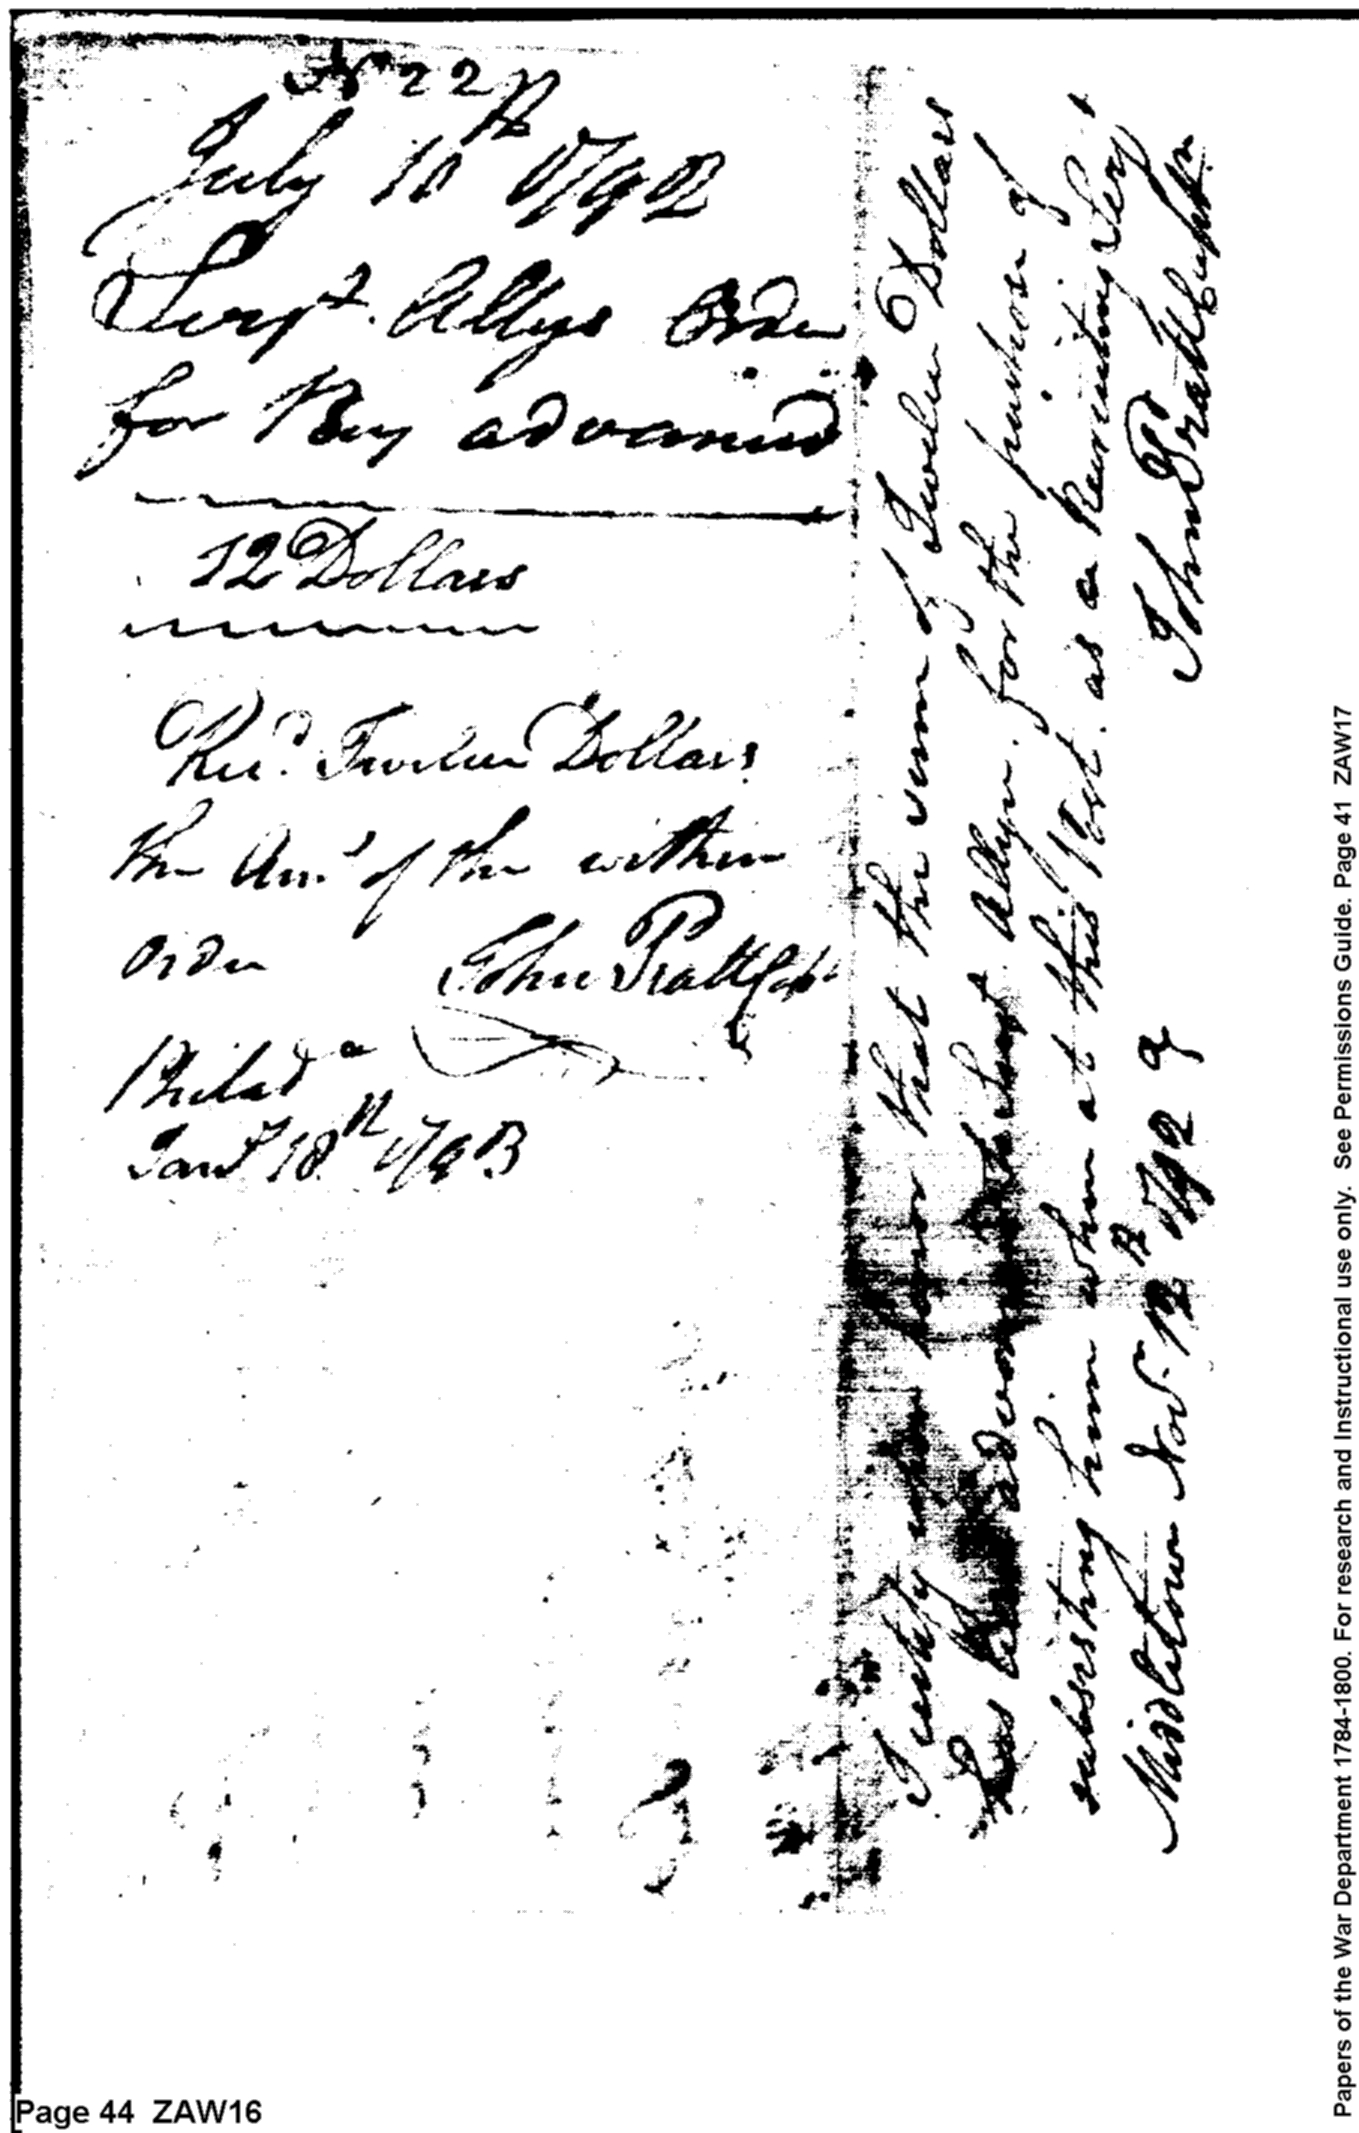 No 22
July 10th 1792
Sergt. Allyns Order
for Pay advanced
12 Dollars
Recd. Twelve Dollars
the Amt of the within
Order John Pratt Capt
Philada
Jany 18th 1793
I certify upon honor that the sum of Twelve Dollars
has been advanced to Sergt Allyn. for the purpose of
subsisting him when at this Post. as a Recruiting Sergt
Middletown Novr. 12th 1792 John Pratt Captn
Papers of the War Department 1784-1800. For research and Instructional use only. See Permissions Guide. Page 41 ZAW17
Page 44 ZAW16